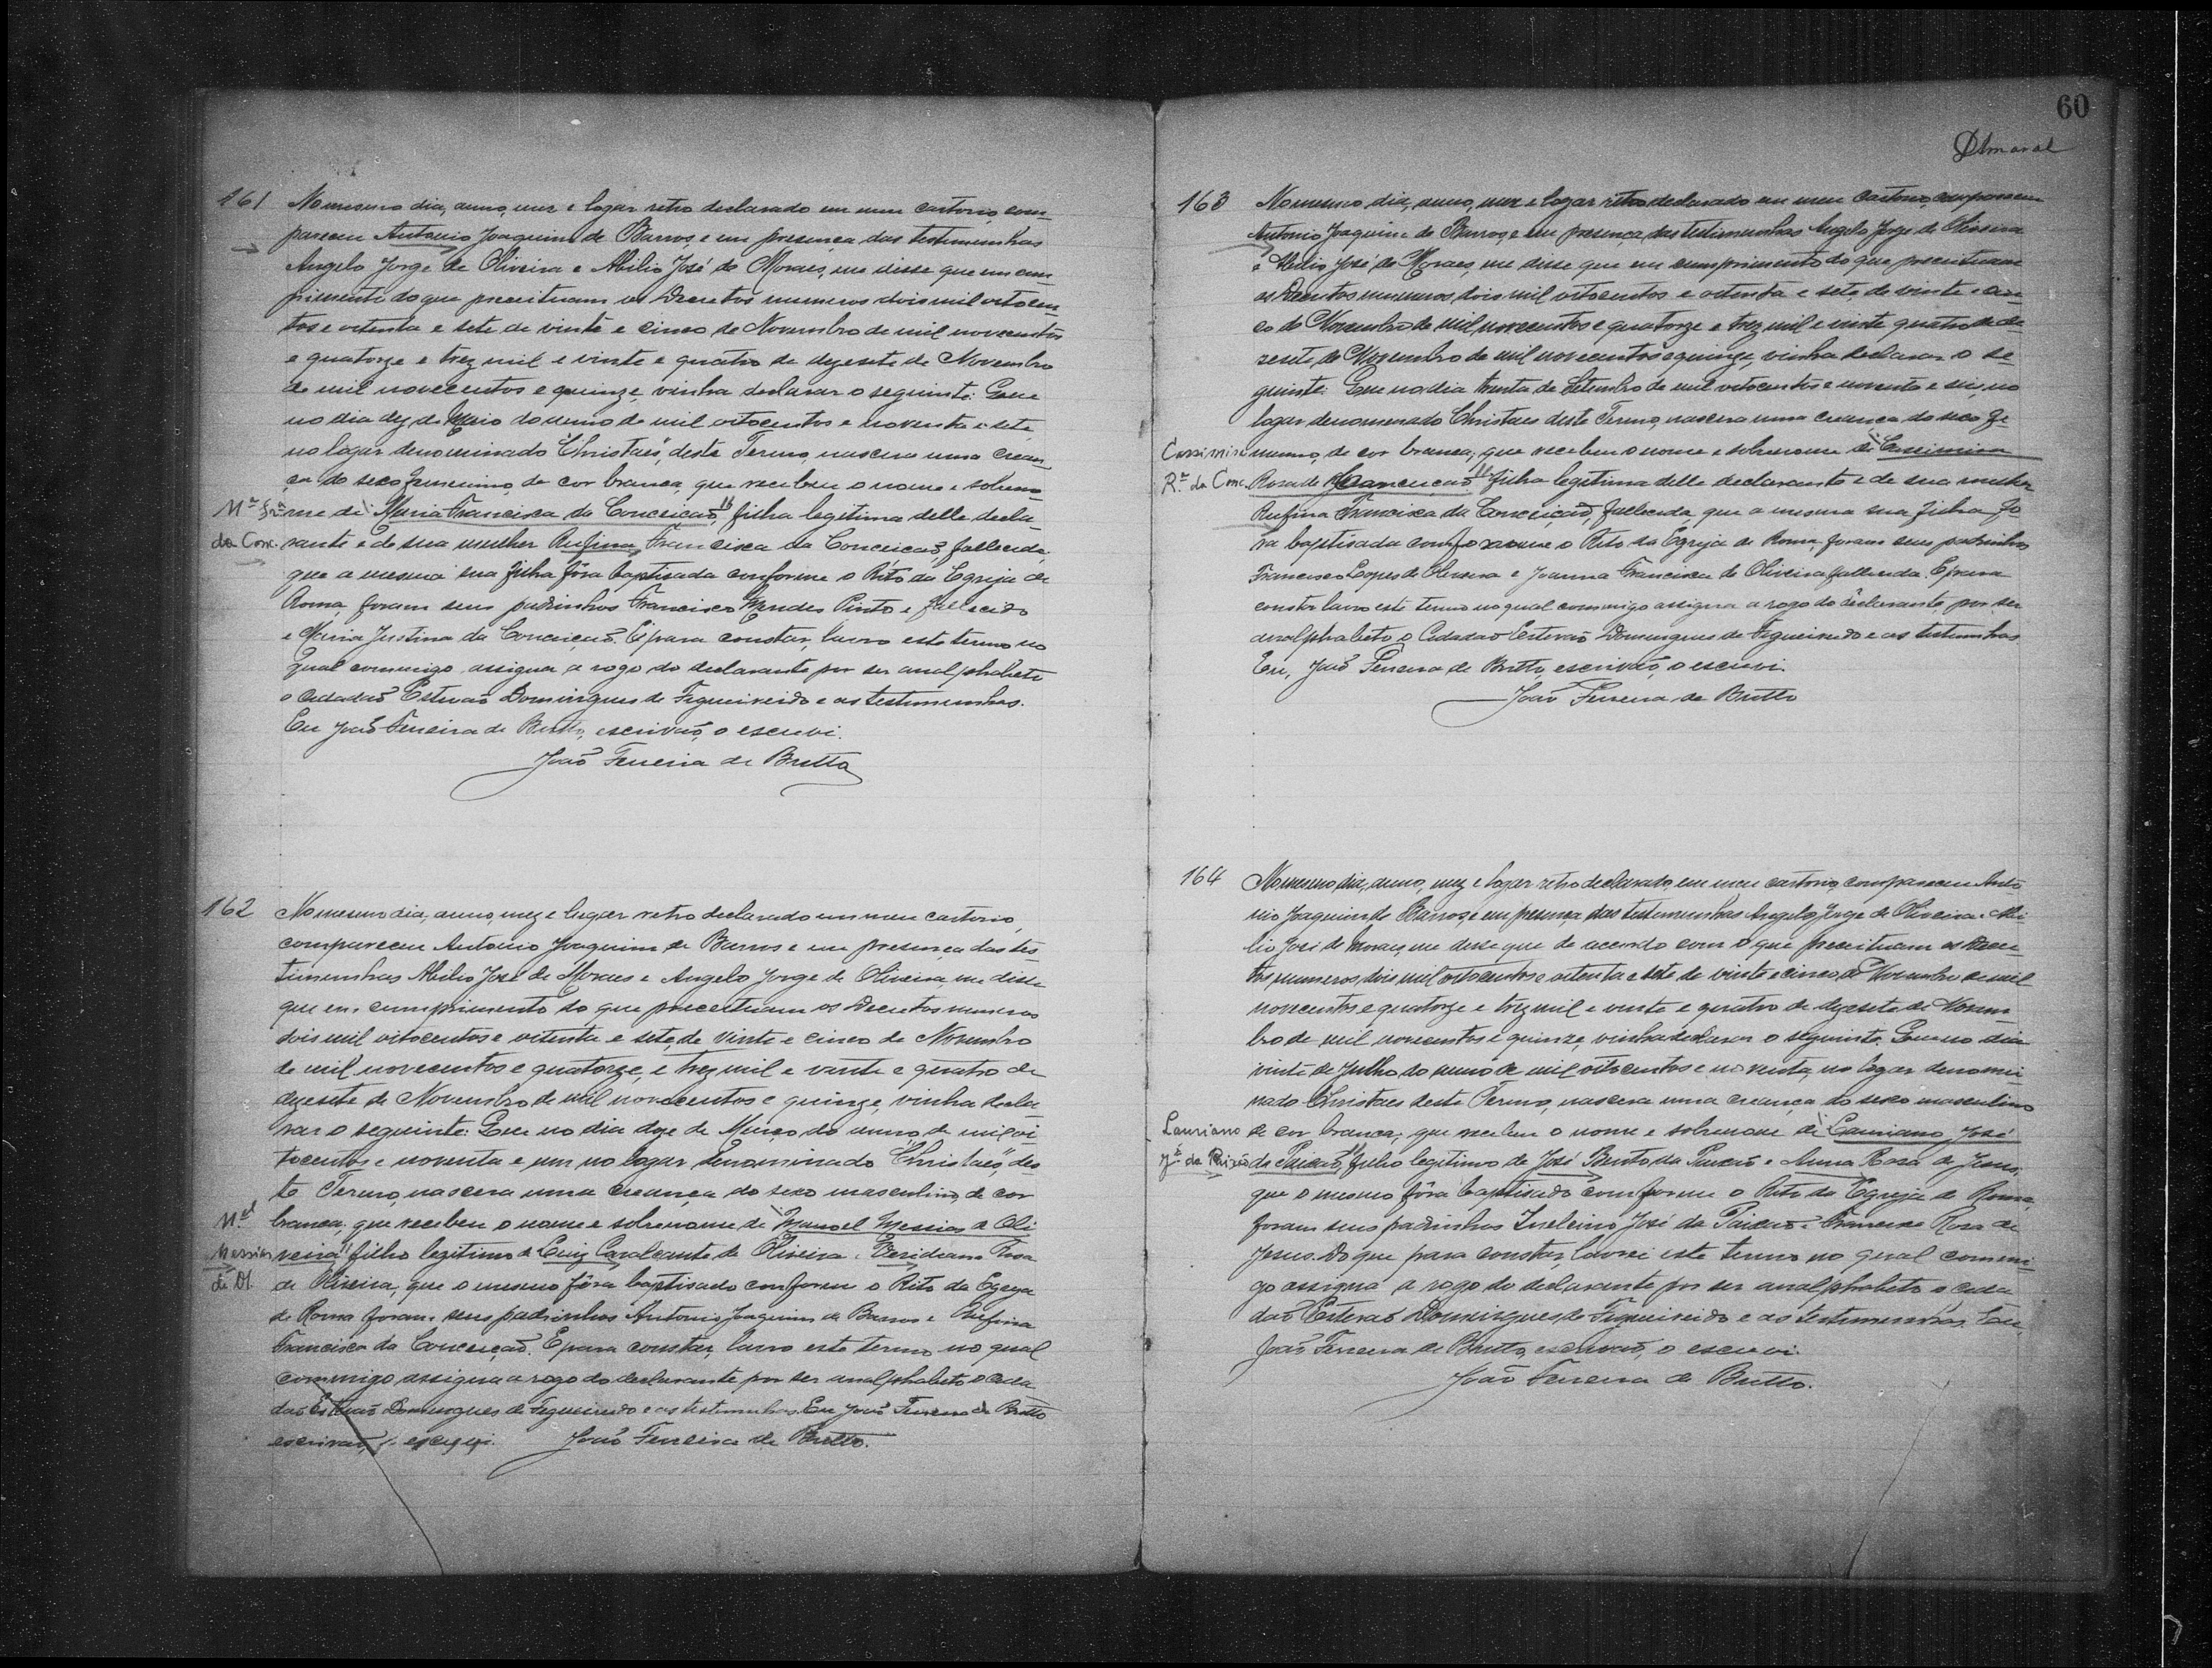 161 No mesmo dia, anno, mez e logar retro declarado em meu cartorio, com-
pareceu Antonio Joaquim de Barros, e em presença das testemunhas
Angelo Jorge de Oliveira e Abilio José de Moraes, me disse que em cum-
primento do que preceituam os Decretos numeros dois mil oitocen-
tos e oitenta e sete de vinte e cinco de Novembro de mil novecentos
e quatorze e trez mil e vinte e quatro de dezesete de Novembro
de mil novecentos e quinze, vinha declarar o seguinte: Que
no dia dez de Maio do anno de mil oitocentos e noventa e sete,
no logar denominado "Christaes", deste Termo, nascera uma crean-
ça do sexo femenino, de cor branca, que recebeu o nome e sobreno-
Mª Frª me de "Maria Francisca da Conceicaõ" filha legitima delle decla-
da Conc. rante e de sua mulher Rufina Francisca da Conceicaõ, fallecida,
que a mesma sua filha fôra baptisada conforme o Rito da Egreja de
Roma, foram seus padrinhos Francisco Mendes Pinto e fallecido
e Maria Justina da Conceiçaõ. E para constar, lavro este termo no
qual commigo assigna a rogo do declarante por ser analphabeto
o cidadaõ Estevaõ Domingues de Figueireido e as testemunhas.
Eu Joaõ Ferreira de Britto, escrivaõ, o escrevi.
Joaõ Ferreira de Britto
162 No mesmo dia, anno, mez e lugar retro declarado em meu cartorio,
compareceu Antonio Joaquim de Barros e em presença das tes-
timunhas Abilio José de Moraes e Angelo Jorge de Oliveira, me disse
que em cumprimento do que preceituam os Decretos numeros
dois mil oitocentos e oitenta e sete, de vinte e cinco de Novembro
de mil novecentos e quatorze, e trez mil e vinte e quatro de
dezesete de Novembro de mil novecentos e quinze, vinha decla-
rar o seguinte: Que no dia doze de Março do anno de mil oi-
tocentos e noventa e um no logar denominado "Christaes", des-
te Termo, nascera uma creança do sexo masculino, de cor
Mel branca, que recebeu o nome e sobrenome de "Manoel Messias de Oli-
Messias veira" filho legitimo de Luiz Cavalcante de Oliveira e Veridiana Rosa
de Ol. de Oliveira, que o mesmo fôra baptisado conforme o Rito da Egreja
de Roma foram seus padrinhos Antonio Joaquim de Barros e Rufina
Francisca da Conceiçaõ. E para constar, lavro este termo no qual
commigo assigna a rogo do declarante por ser analphabeto o cida-
daõ Estevaõ Domingues de Figueireido e as testemunhas. Eu Joaõ Ferreira de Britto
escrivaõ, o escrevi. Joaõ Ferreira de Britto.
60
DAmaral
163 No mesmo dia, anno, mez e logar retro declarado em meu cartorio, compareceu
Antonio Joaquim de Barros, e em presença das testimunhas Angelo Jorge de Oliveira
e Abilio José de Moraes, me disse que em cumprimento do que preceituam
os Decretos numeros, dois mil oitocentos e oitenta e sete de vinte e cin-
co de Novembro de mil novecentos e quatorze e trez mil e vinte quatro de de-
zesete de Novembro de mil novecentos e quinze, vinha declarar o se-
guinte. Que no dia trinta de Setembro de mil oitocentos e noventa e seis, no
logar denomenado Christaes deste Termo, nascera uma creança do sexo fe-
Cassimira menno, de cor branca, que recebeu o nome e sobrenome de "Cassimira
Rª da Conc. Rosa de Conceiçaõ" filha legitima delle declarante e de sua mulher
Rufina Francisca da Conceiçaõ, fallecida, que a mesma sua filha fo-
ra baptisada conforme o Rito da Egreja de Roma, foram seus padrinhos
Francisco Lopes de Oliveira e Joanna Francisca de Oliveira fallecida. E para
constar lavro este termo no qual commigo assigna a rogo do declarante, por ser
analphabeto o Cidadaõ Estevaõ Domingues de Figueiredo e as testemunhas
Eu, Joaõ Ferreira de Britto, escrivaõ, o escrevi.
Joaõ Ferreira de Britto
164 No mesmo dia, anno, mez e logar retro declarado, em meu cartorio, compareceu Anto-
nio Joaquim de Barros, e em presença das testemunhas Angelo Jorge de Oliveira e Abi-
lio José de Moraes, me disse que de accordo com o que preceituam os Decre-
tos numeros, dois mil oitocentos e oitenta e sete de vinte e cinco de Novembro de mil
novecentos e quatorze e trez mil e vinte e quatro de dezesete de Novem-
bro de mil novecentos e quinze, vinha declarar o seguinte: Que no dia
vinte de Julho do anno de mil oitocentos e noventa, no logar denomi-
nado Christaes deste Termo, nascera uma creança do sexo masculino
Lauriano de cor branca, que recebeu o nome e sobrenome de "Lauriano José
Jé da Paixaõ da Paixaõ" filho legitimo de José Bento da Paixaõ e Anna Rosa de Jesus,
que o mesmo fôra baptisado conforme o Rito da Egreja de Roma,
foram seus padrinhos José da Paixaõ e Francisca Rosa de
Jesus. Do que para constar, lavrei este termo no qual commi-
go assigna a rogo do declarante por ser analphabeto o cida-
daõ Estevaõ Domingues de Figueireido e as testemunhas. Eu,
Joaõ Ferreira de Britto, escrivaõ, o escrevi.
Joaõ Ferreira de Britto.